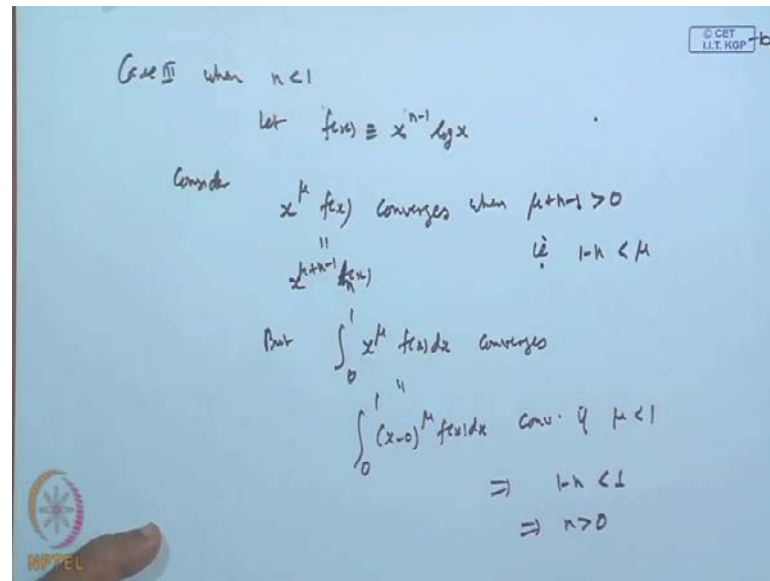 © CET
I.I.T. KGP
Case III when n < 1
Let f(x) ≡ x^{n-1} log x
Consider
x^μ f(x) converges when μ+n-1 > 0
"
x^{μ+n-1} i.e. 1-n < μ
But ∫_0^1 x^μ f(x) dx converges
"
∫_0^1 (x-0)^μ f(x) dx conv. if μ < 1
⇒ 1-n < 1
⇒ n > 0
NPTEL